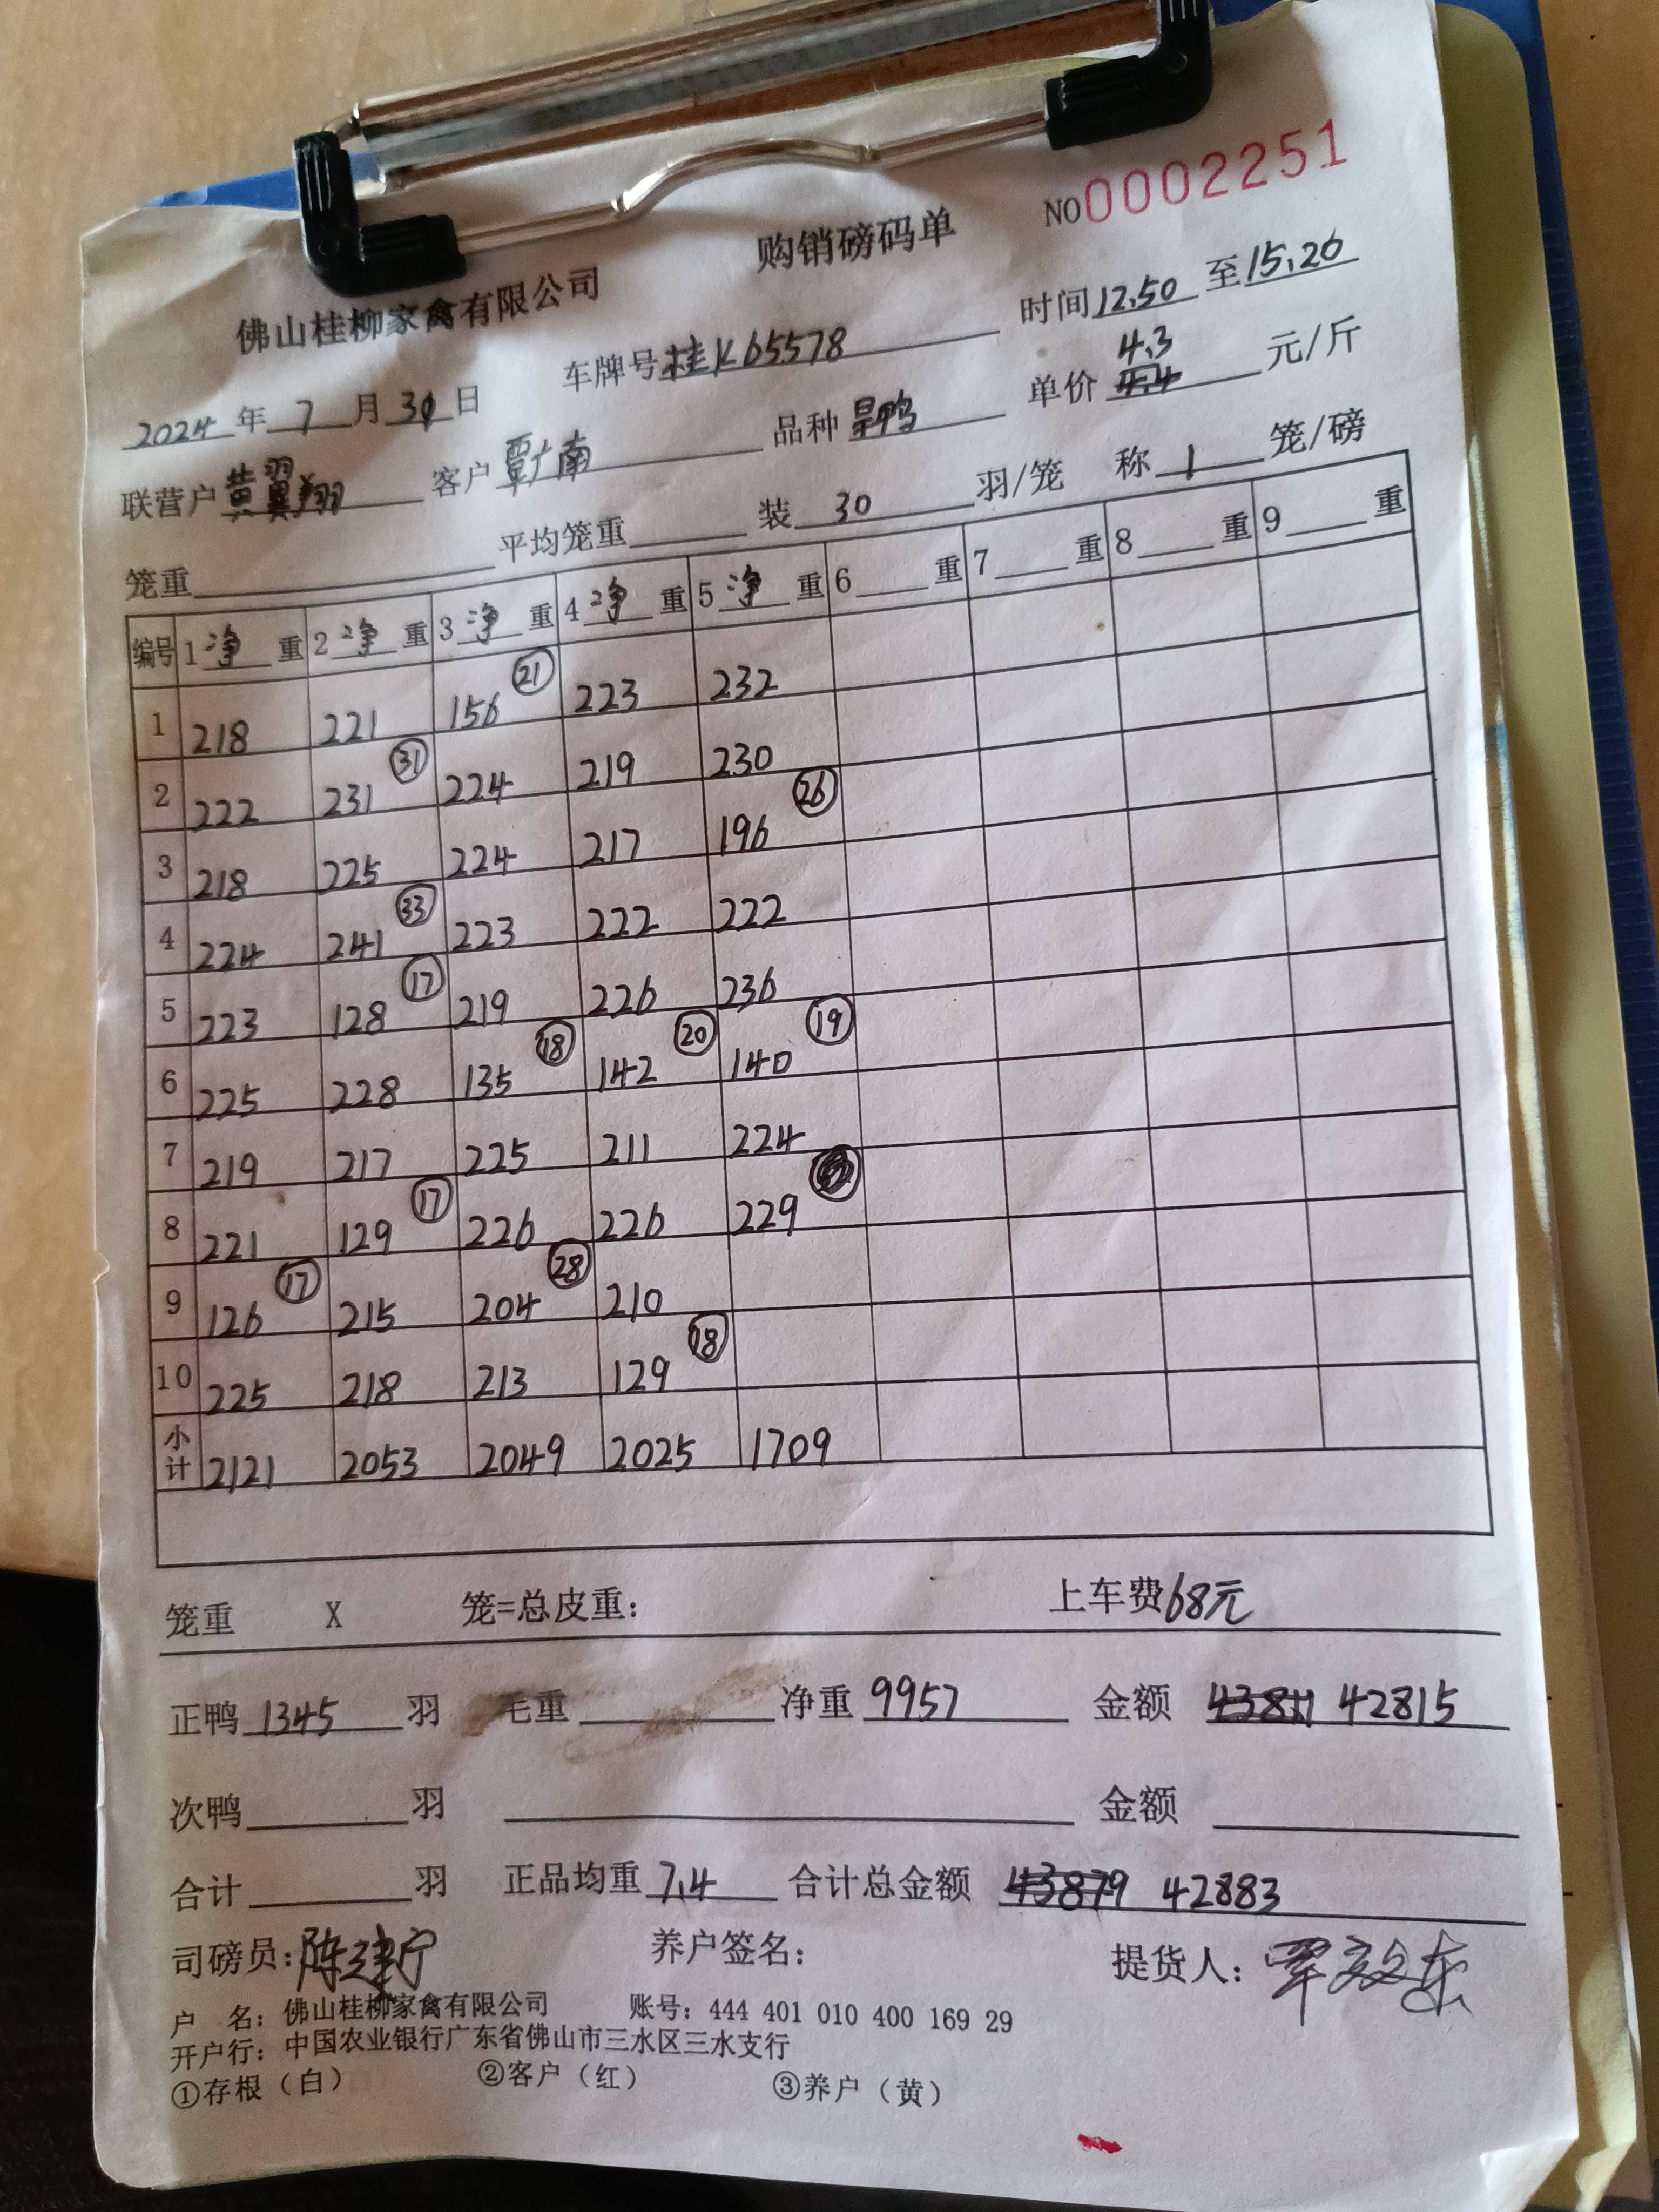 NO0002251
佛山桂柳家禽有限公司 购销磅码单
2024年7月30日 车牌号桂K65578 时间12.50至15.20
联营户黄翼翔 客户覃广南 品种旱鸭 单价4.3 4.4元/斤
笼重 平均笼重 装30羽/笼 称1笼/磅
编号 1净重 2净重 3净重 4净重 5净重 6重 7重 8重 9重
1 218 221 156 21 223 232
2 222 231 31 224 219 230
3 218 225 224 217 196 26
4 224 241 33 223 222 222
5 223 128 17 219 226 236
6 225 228 135 18 142 20 140 19
7 219 217 225 211 224
8 221 129 17 226 226 229
9 126 17 215 204 28 210
10 225 218 213 129 18
小计 2121 2053 2049 2025 1709
笼重 X 笼=总皮重: 上车费68元
正鸭1345羽 毛重 净重9957 金额 42815
次鸭 羽 金额
合计 羽 正品均重7.4 合计总金额 43879 42883
司磅员:陈建宁 养户签名: 提货人:
户 名: 佛山桂柳家禽有限公司 账号: 444 401 010 400 169 29
开户行: 中国农业银行广东省佛山市三水区三水支行
①存根(白) ②客户(红) ③养户(黄)